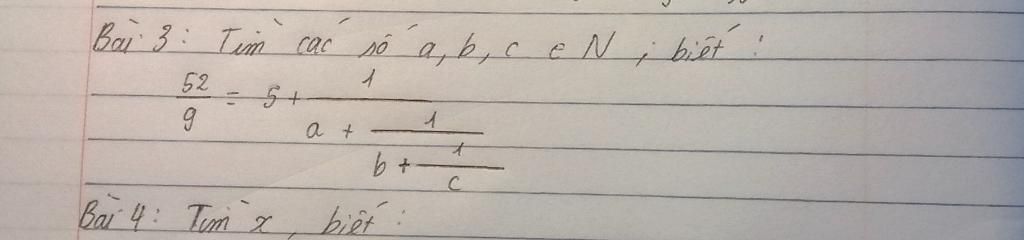 Bài 3: Tìm các số a, b, c e N ; biết :
52/9 = 5 + 1/(a + 1/(b + 1/c))
Bài 4: Tìm x, biết :